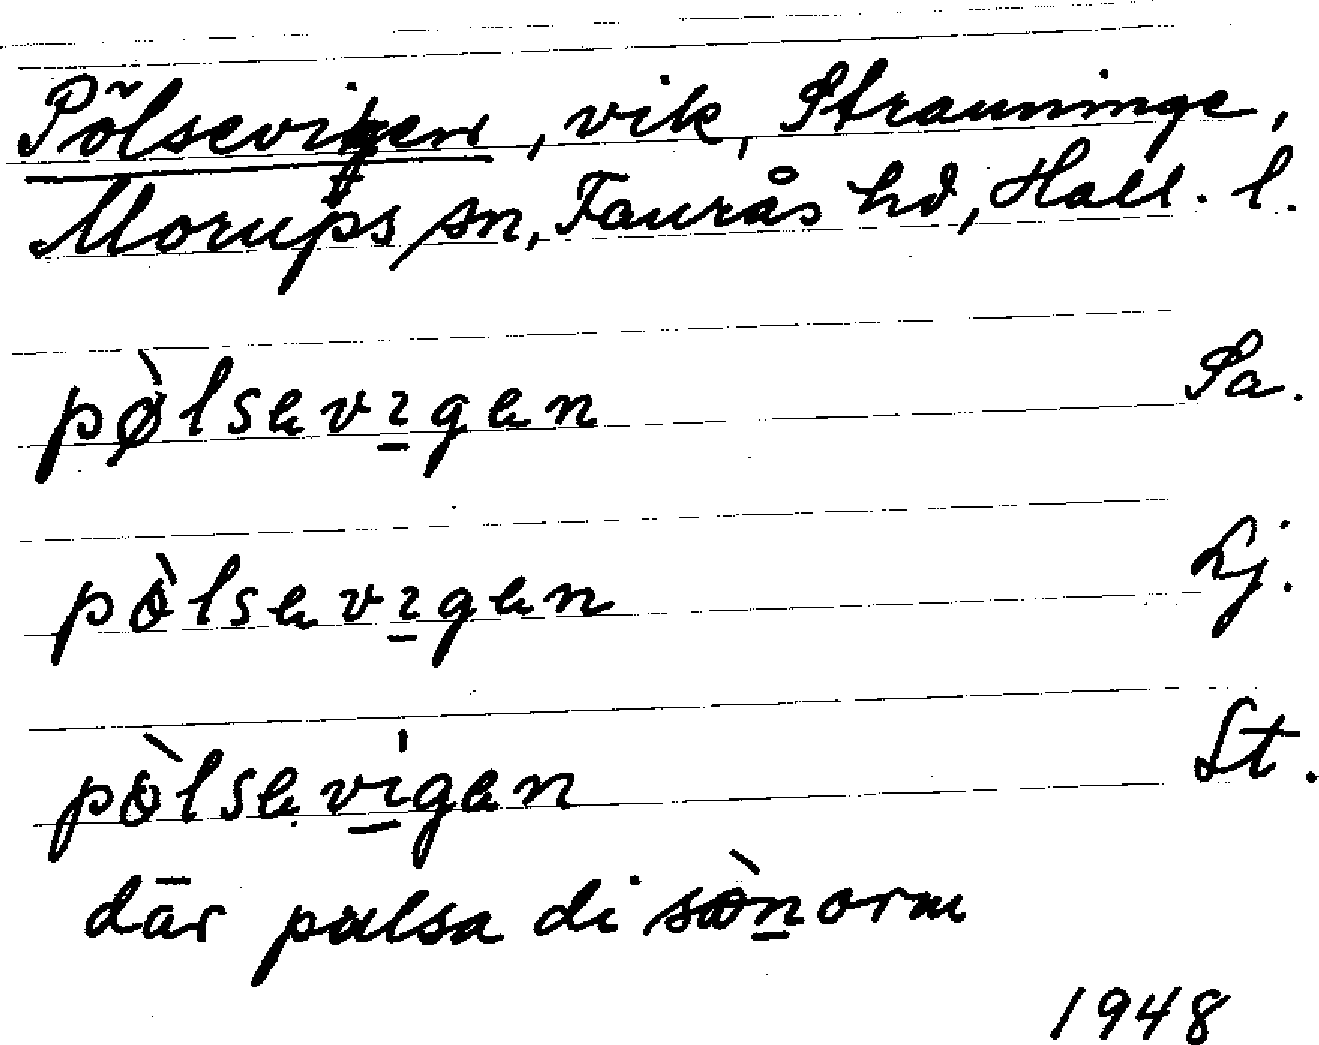 Pölsevigen, vik, Strauninge,
Morups sn, Faurås hd, Hall. l.
pø̀lsevıgen Sa.
pòlsevıgen Lj.
pòlsevıgen St.
där pulsa di sònorm
1948